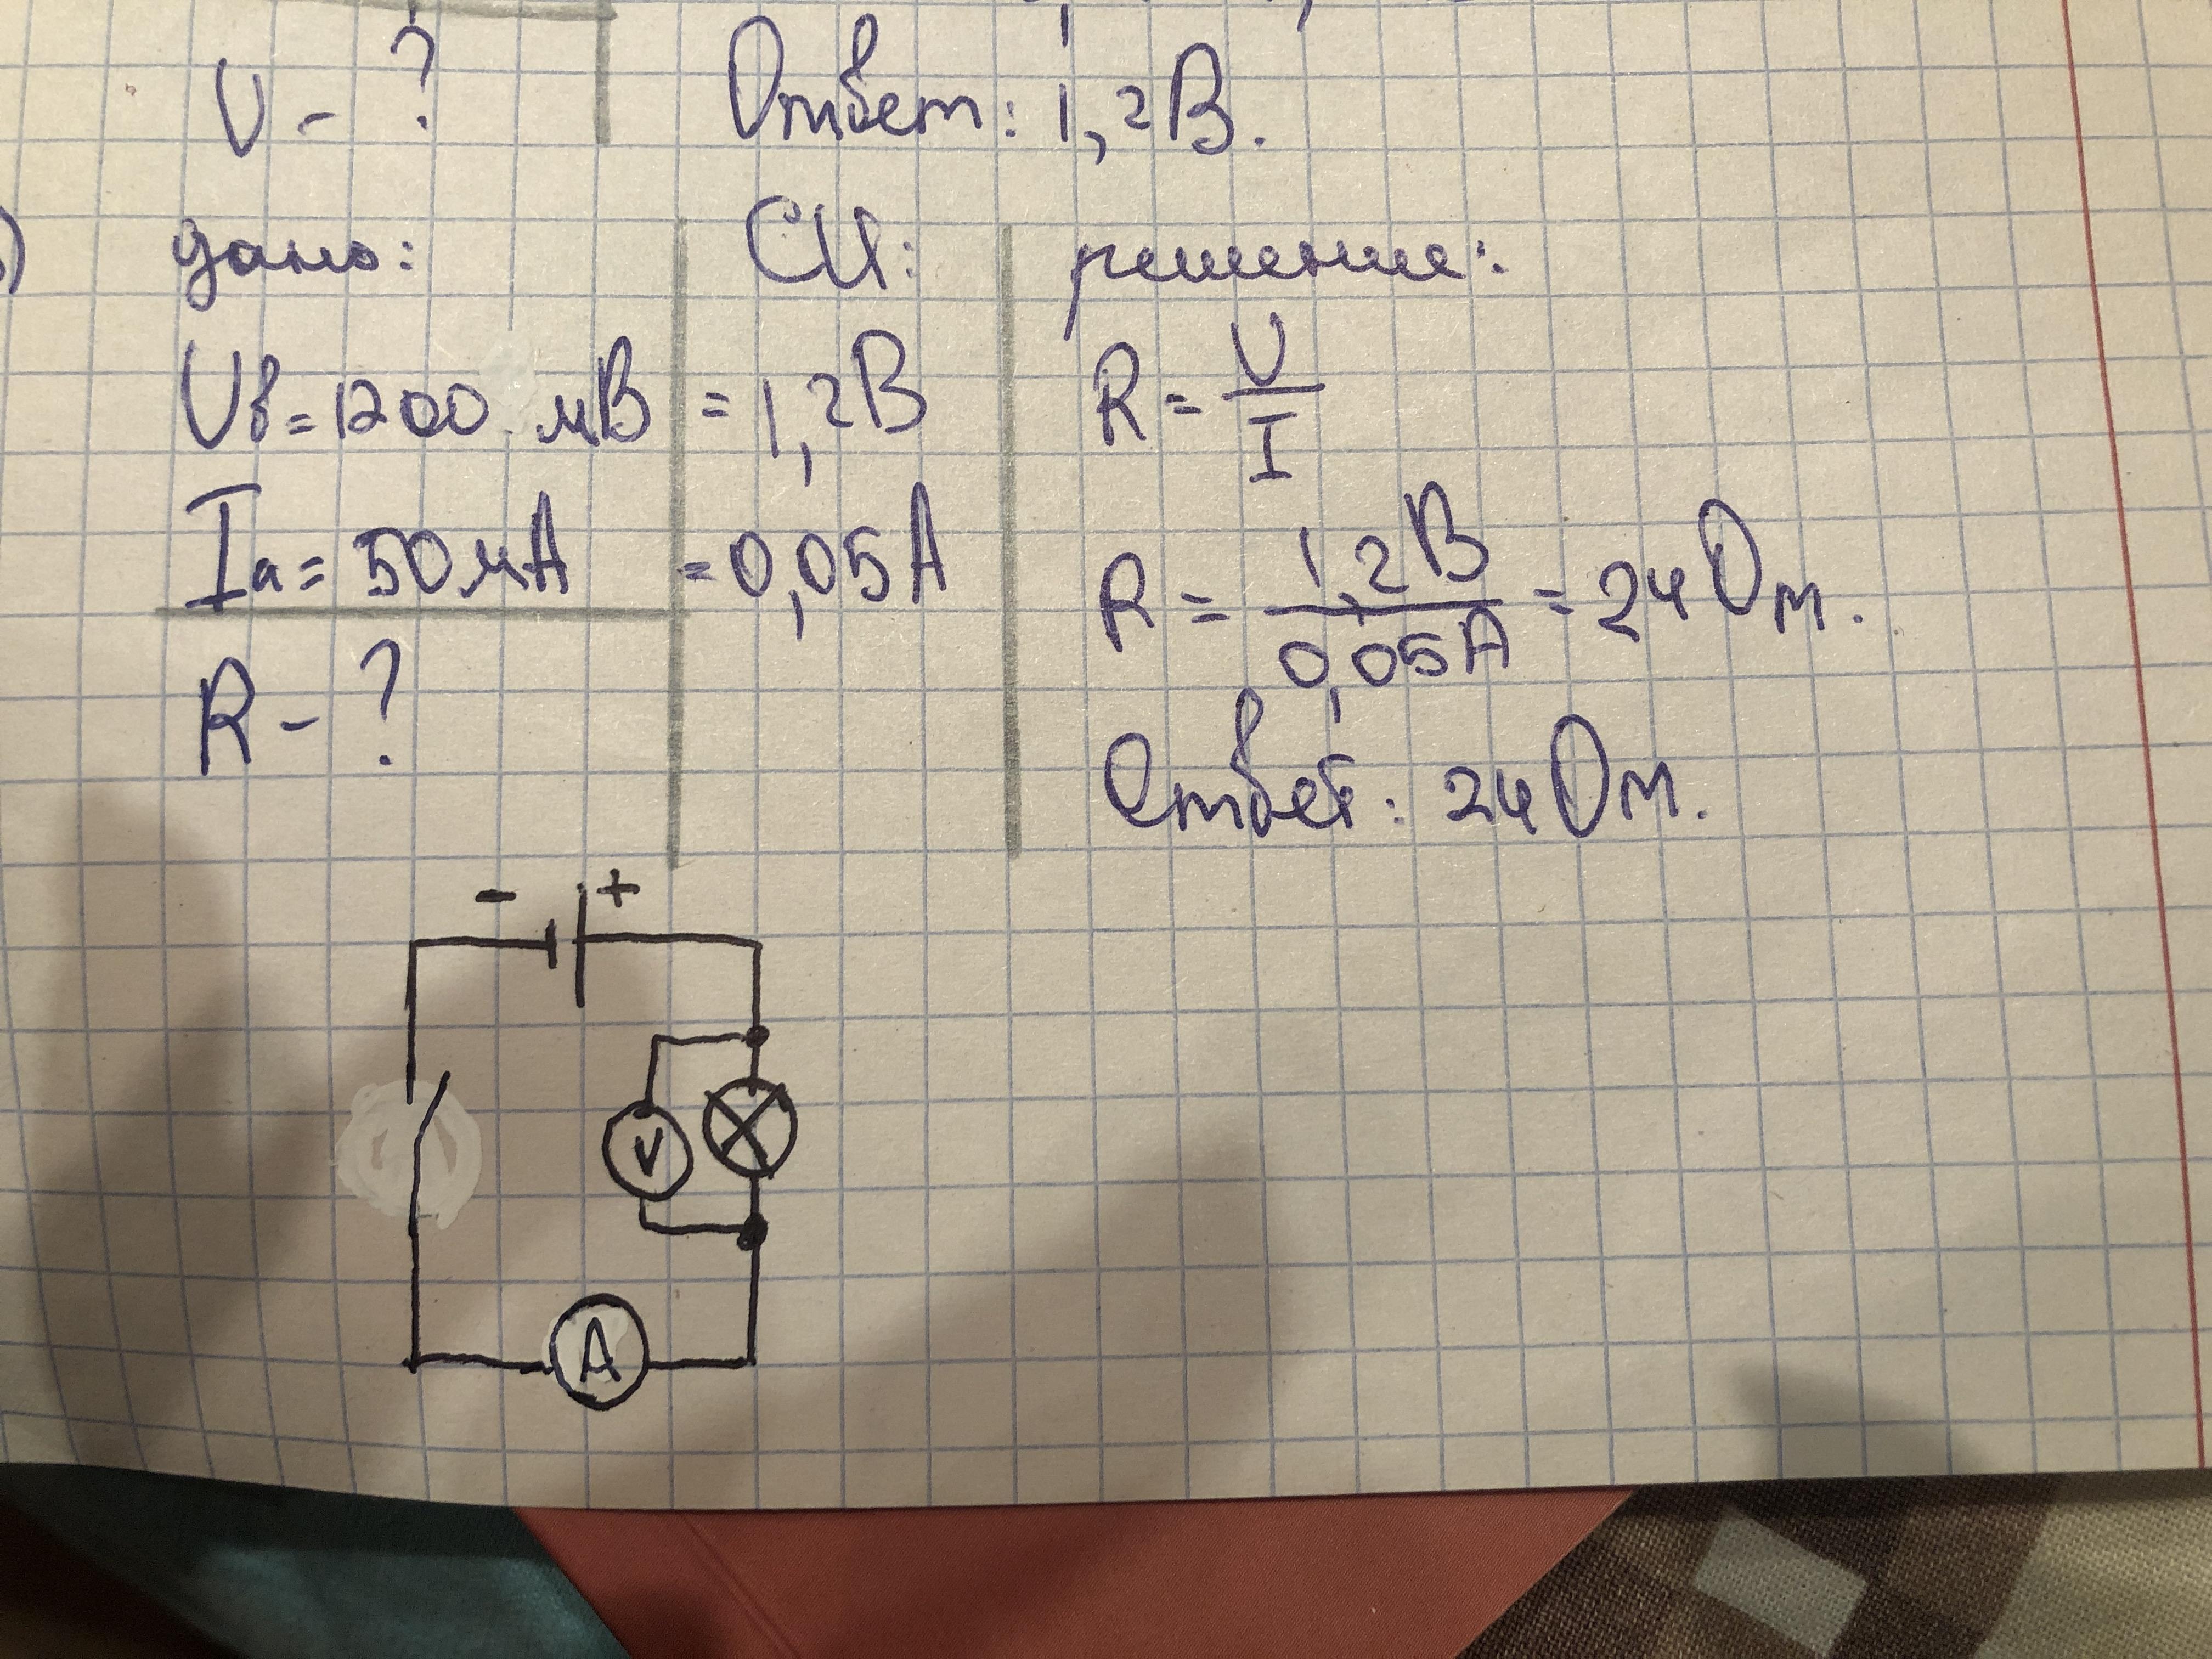 U - ?
Ответ: 1,2В.
дано:
СИ:
решение:
Uв = 1200 мВ
= 1,2В
R = U/I
Iа = 50 мА
= 0,05А
R = 1,2В/0,05А = 24 Ом.
R - ?
Ответ: 24 Ом.
- +
V
A